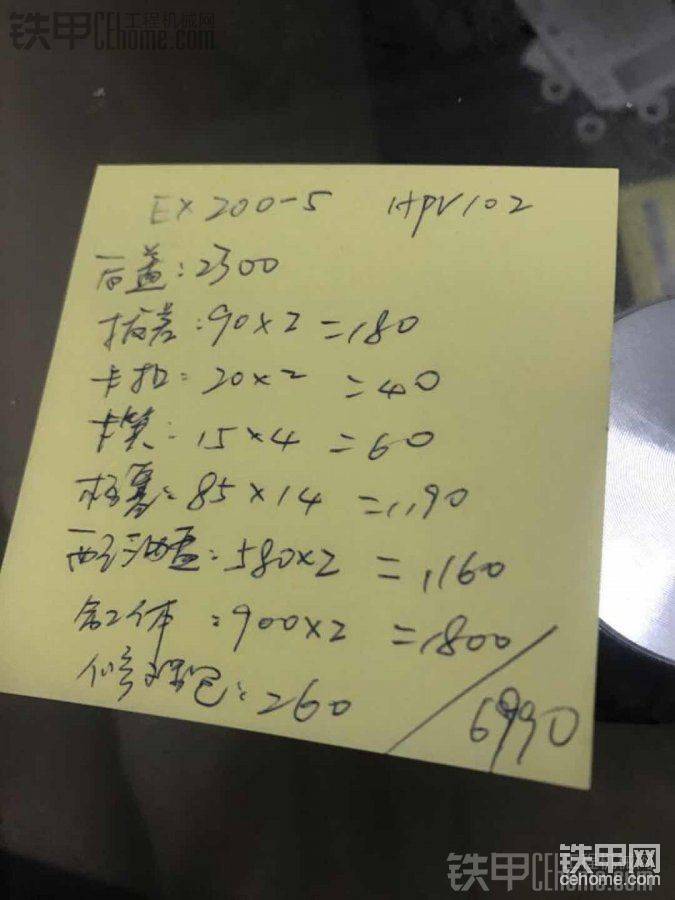 铁甲CE工程机械网
home.com
EX200-5 HPV102
后盖:2300
:90×2=180
卡扣:20×2=40
卡簧:15×4=60
柱塞:85×14=1190
油盘:580×2=1160
缸体:900×2=1800
修理包:260
6990
铁甲网
cehome.com
铁甲CEhome.com